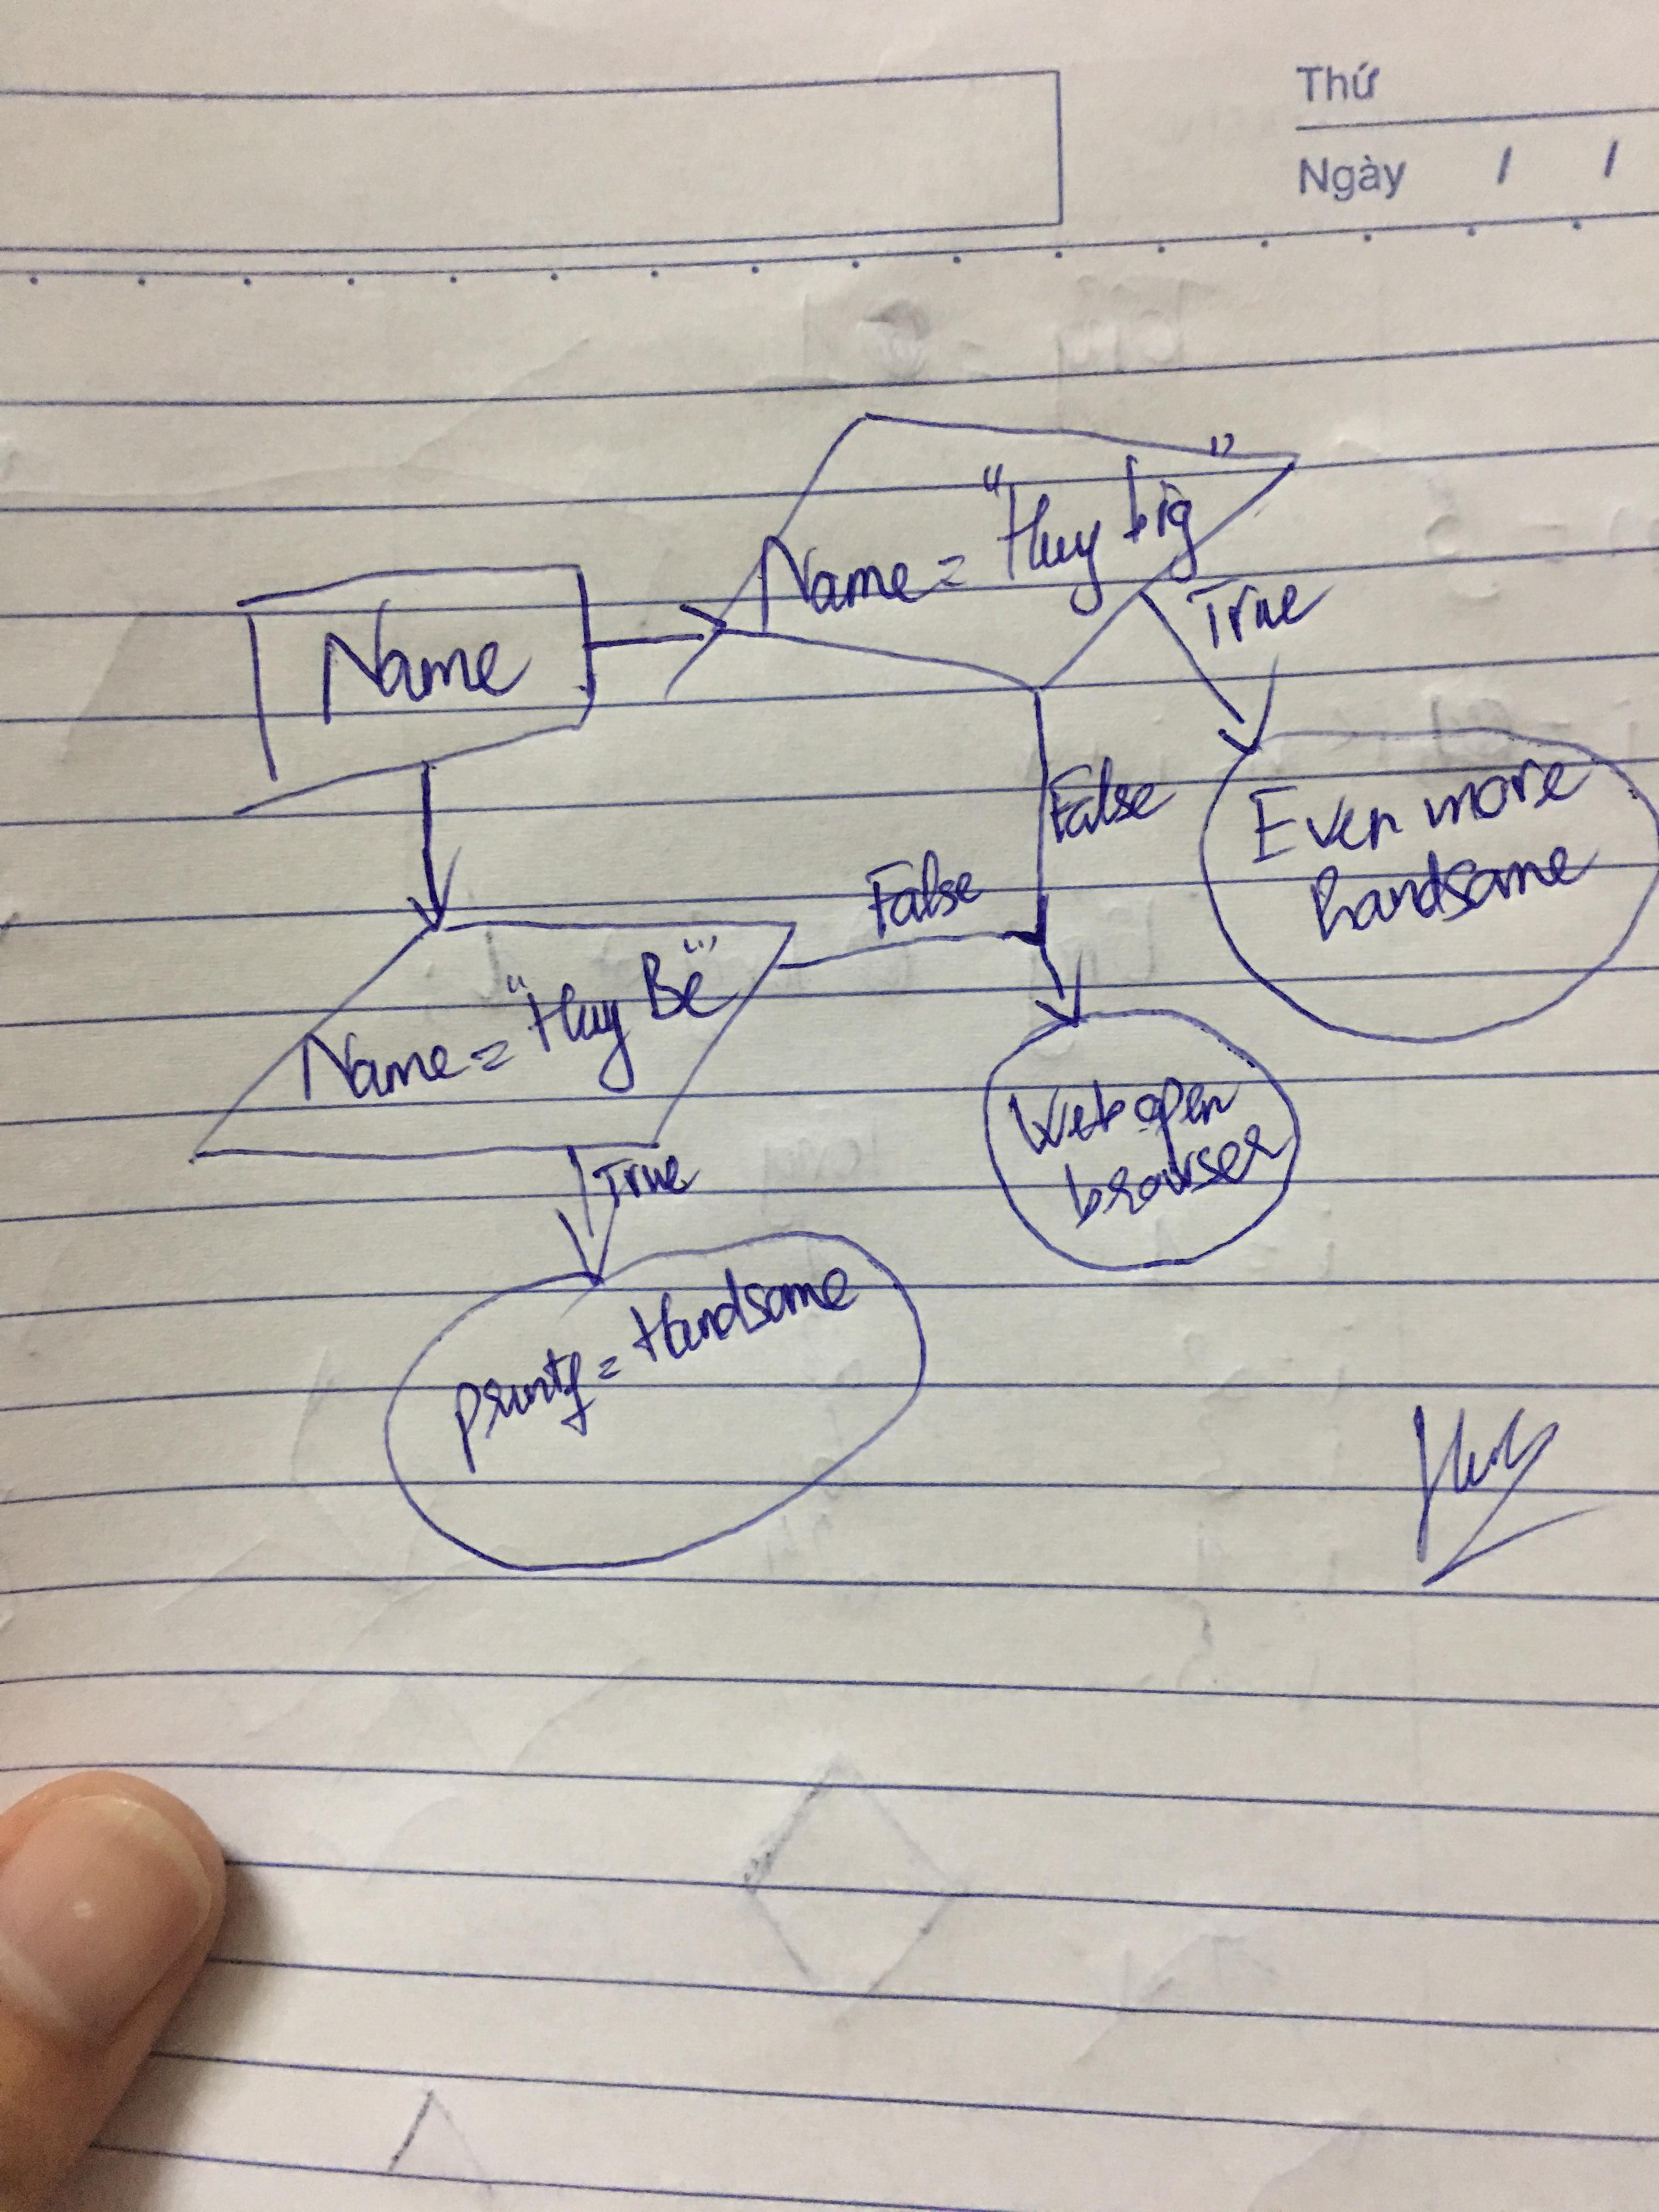 Thứ
Ngày / /
Name = "Huy big"
True
Name
False
Even more
handsome
False
Name = "Huy Bé"
Web open
browser
True
printf = Handsome
Huy